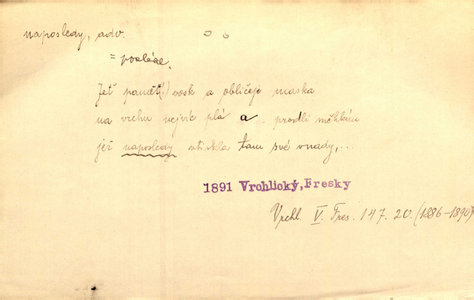 naposledy, adv.
= posléze.
Jeť paměť(!) vosk a obličeje maska
na vrchu nejvíc plá a .. prodlí měkkém
jež naposledy vtiskla tam své vnady,...
1891 Vrchlický, Fresky
Vrchl. V. Fres. 147. 20. (1886-1890)